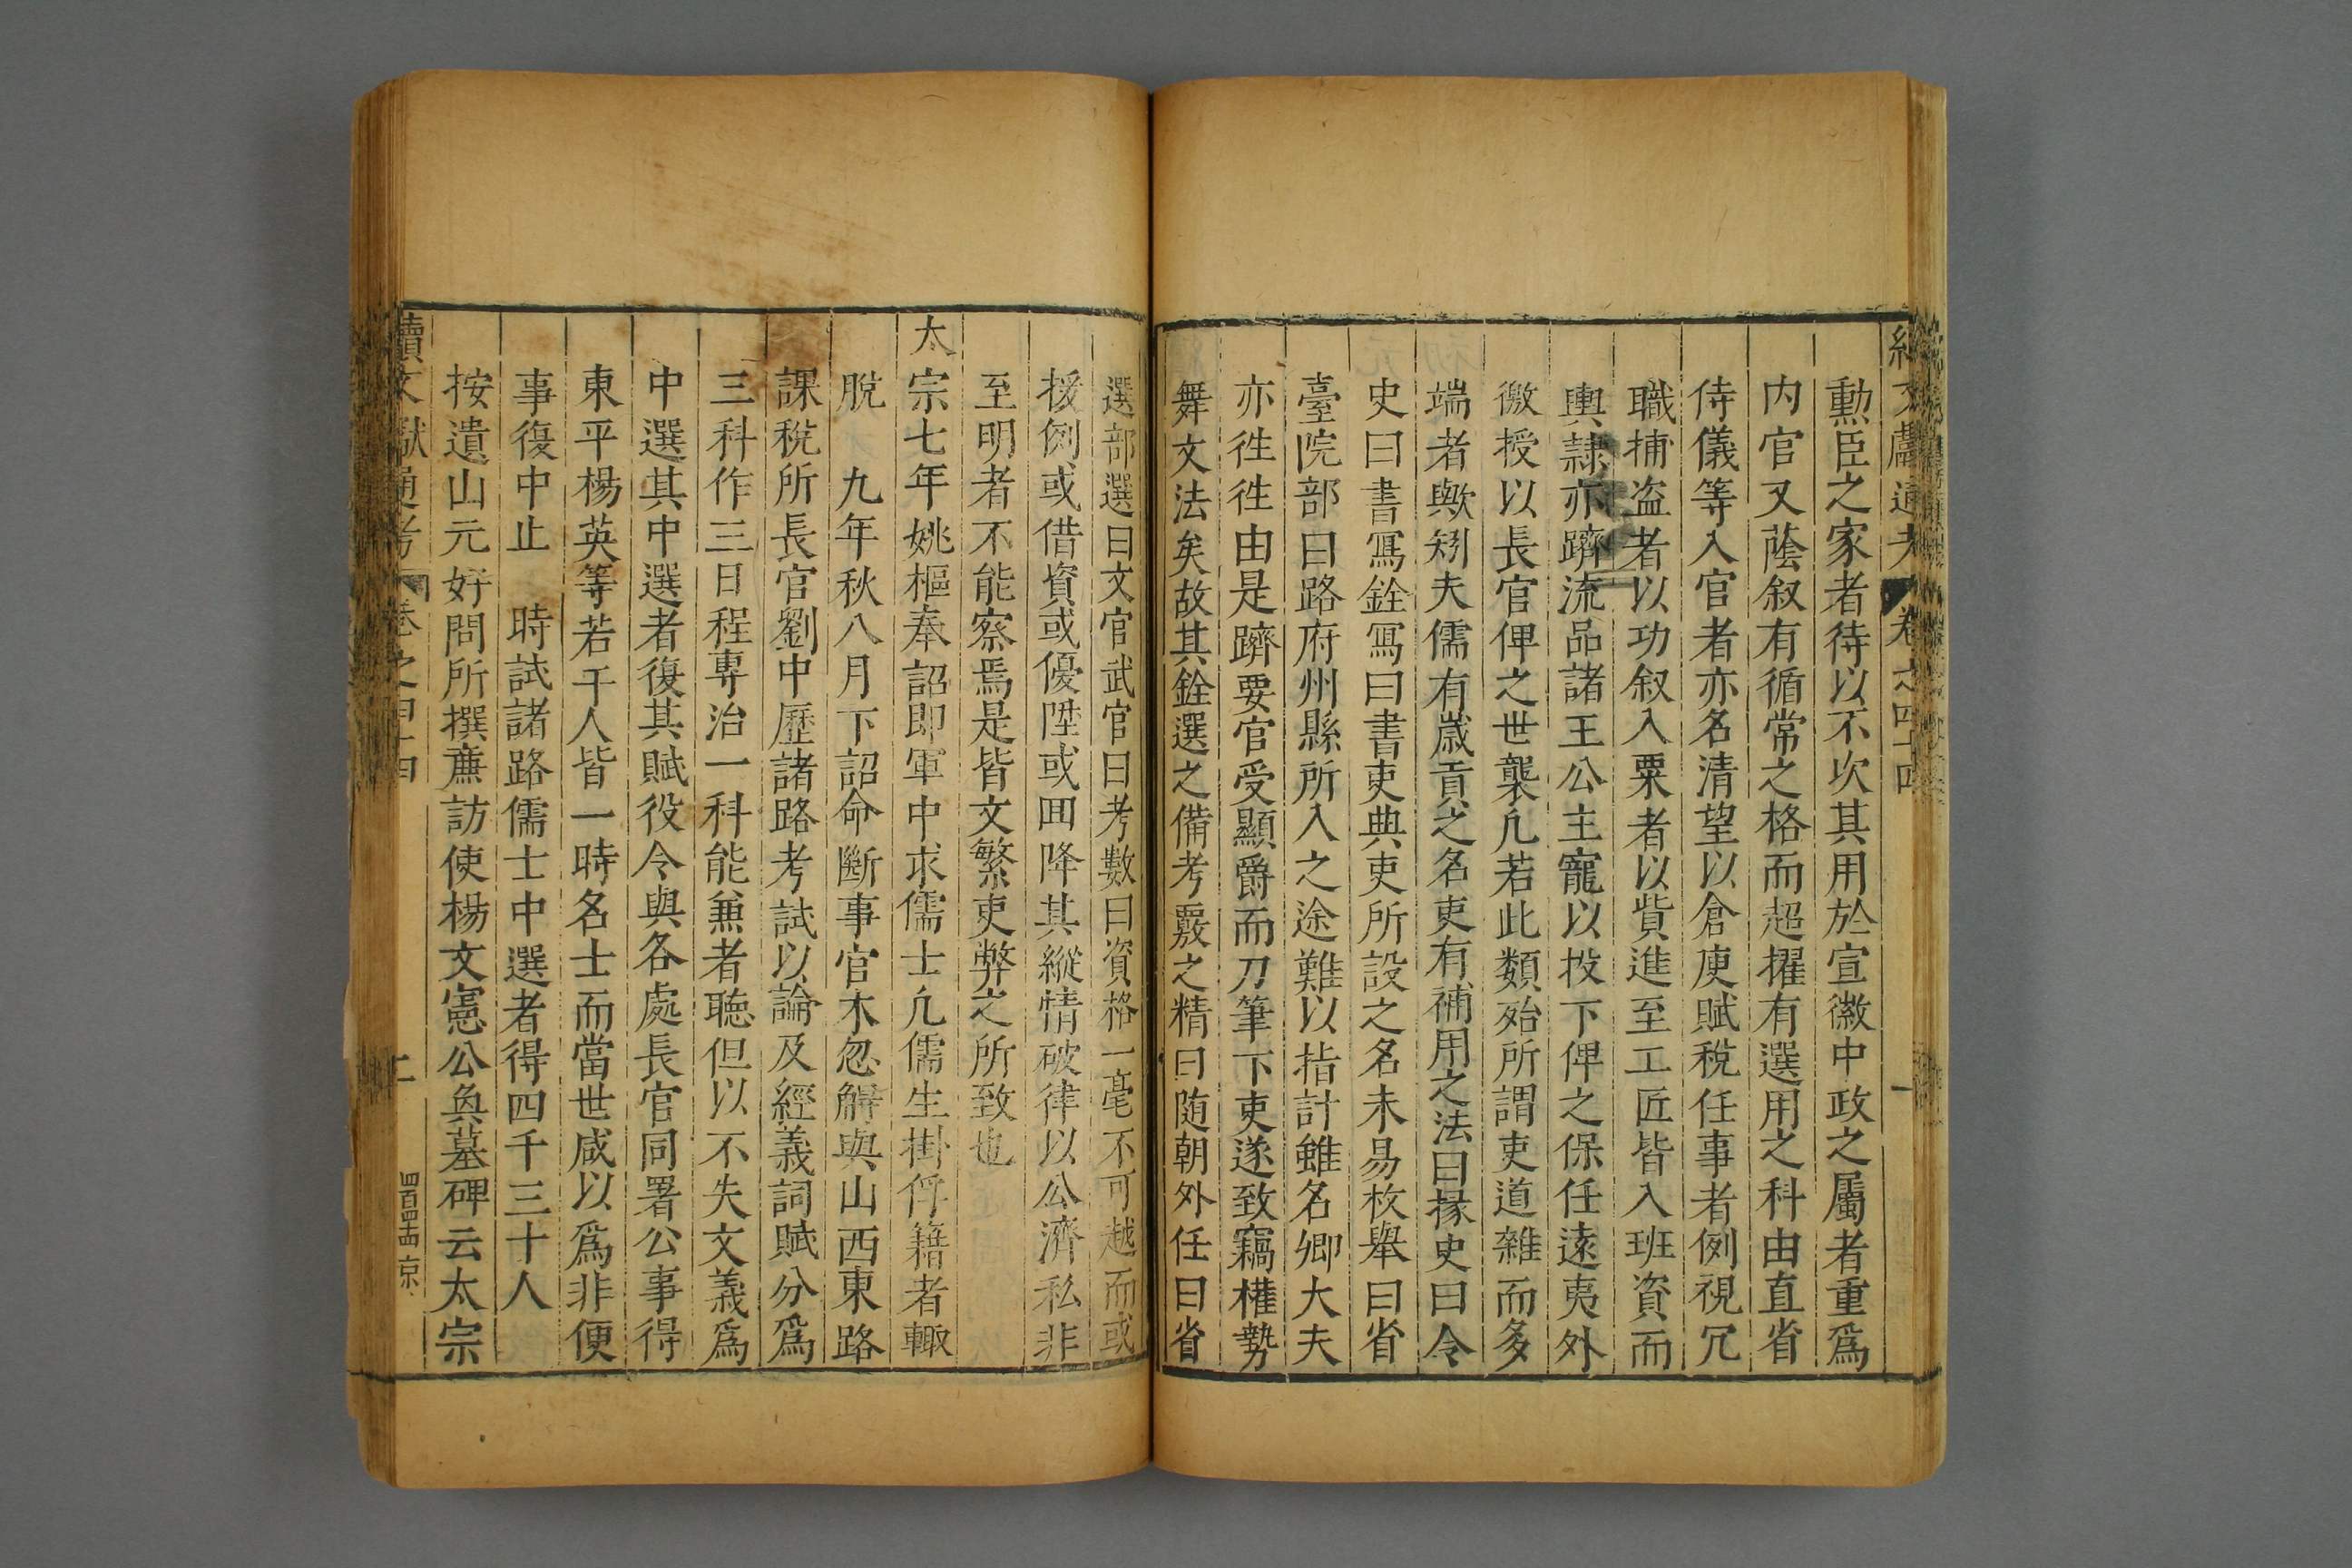 續文獻通考 卷之四十四 一
勳臣之家者待以不次其用於宣徽中政之屬者重爲
内官又蔭叙有循常之格而超擢有選用之科由直省
侍儀等入官者亦名清望以倉庾賦稅任事者例視冗
職捕盗者以功叙入粟者以貲進至工匠皆入班資而
輿隷亦躋流品諸王公主寵以投下俾之保任遠夷外
徼授以長官俾之世襲凢若此類殆所謂吏道雜而多
端者歟矧夫儒有歲貢之名吏有補用之法曰掾史曰令
史曰書冩銓冩曰書吏典吏所設之名未易枚舉曰省
臺院部曰路府州縣所入之途難以指計雖名卿大夫
亦徃徃由是躋要官受顯爵而刀筆下吏遂致竊權勢
舞文法矣故其銓選之備考覈之精曰随朝外任曰省
選部選曰文官武官曰考數曰資格一毫不可越而或
援例或借資或優陞或囬降其縱情破律以公濟私非
至明者不能察焉是皆文繁吏弊之所致也
太宗七年姚樞奉詔即軍中求儒士凢儒生掛俘籍者輙
脫 九年秋八月下詔命斷事官木忽觧與山西東路
課税所長官劉中歷諸路考試以論及經義詞賦分爲
三科作三日程專治一科能兼者聽但以不失文義爲
中選其中選者復其賦役令與各處長官同署公事得
東平楊英等若干人皆一時名士而當世咸以爲非便
事復中止 時試諸路儒士中選者得四千三十人
按遺山元好問所撰廉訪使楊文憲公奐墓碑云太宗
續文獻通考 卷之四十四 二